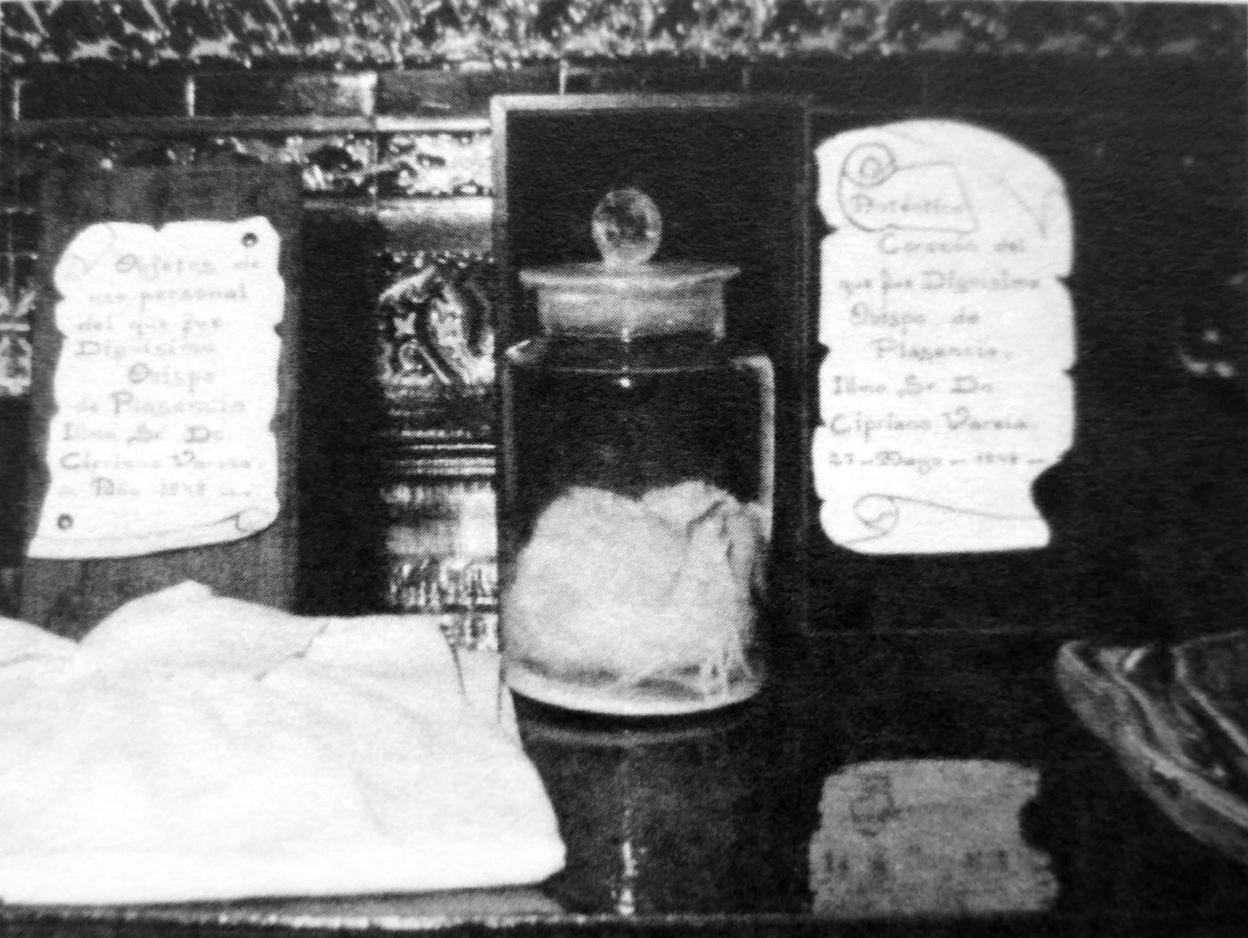 Objetos de
uso personal
del que fue
Dignisimo
Obispo
de Plasencia
Ilmo Sr Dn
Cipriano Varela.
Año 1848
Autentico
Corazón del
que fue Dignisimo
Obispo de
Plasencia.
Ilmo Sr Dn
Cipriano Varela.
Mayo - 1848 -